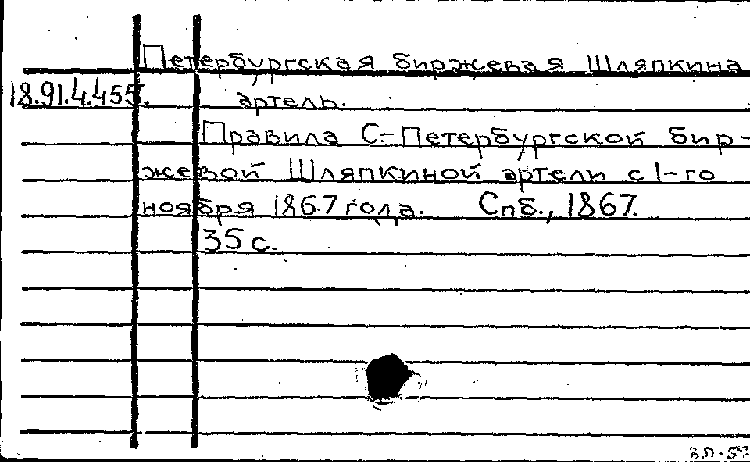 Петербургская биржевая Шляпкина
18.91.4.455. артель.
Правила С-Петербургской бир-
жевой Шляпкиной артели с 1-го
ноября 1867 года. Спб., 1867.
35 с.